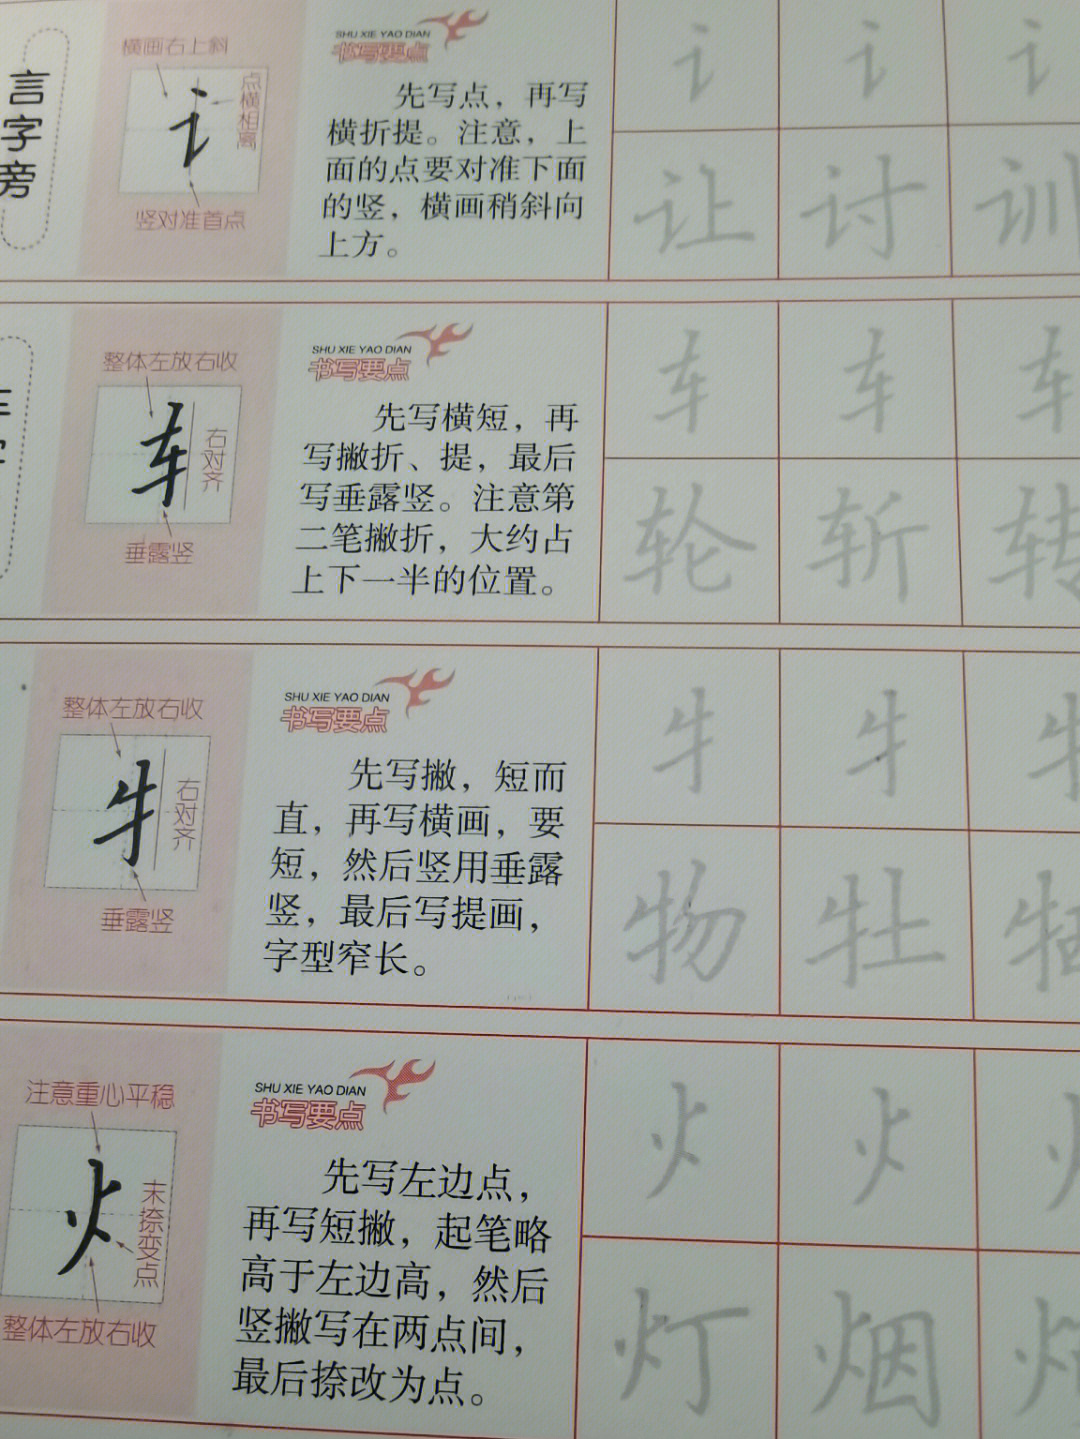 言字旁
横画右上斜
点横相离
讠
竖对准首点
SHU XIE YAO DIAN
书写要点
先写点，再写
横折提。注意，上
面的点要对准下面
的竖，横画稍斜向
上方。
讠 讠 讠
让 讨 训
整体左放右收
右对齐
车
垂露竖
SHU XIE YAO DIAN
书写要点
先写横短，再
写撇折、提，最后
写垂露竖。注意第
二笔撇折，大约占
上下一半的位置。
车 车 车
轮 斩 转
整体左放右收
右对齐
牜
垂露竖
SHU XIE YAO DIAN
书写要点
先写撇，短而
直，再写横画，要
短，然后竖用垂露
竖，最后写提画，
字型窄长。
牜 牜 牜
物 牡
注意重心平稳
末捺变点
火
整体左放右收
SHU XIE YAO DIAN
书写要点
先写左边点，
再写短撇，起笔略
高于左边高，然后
竖撇写在两点间，
最后捺改为点。
火 火
灯 烟